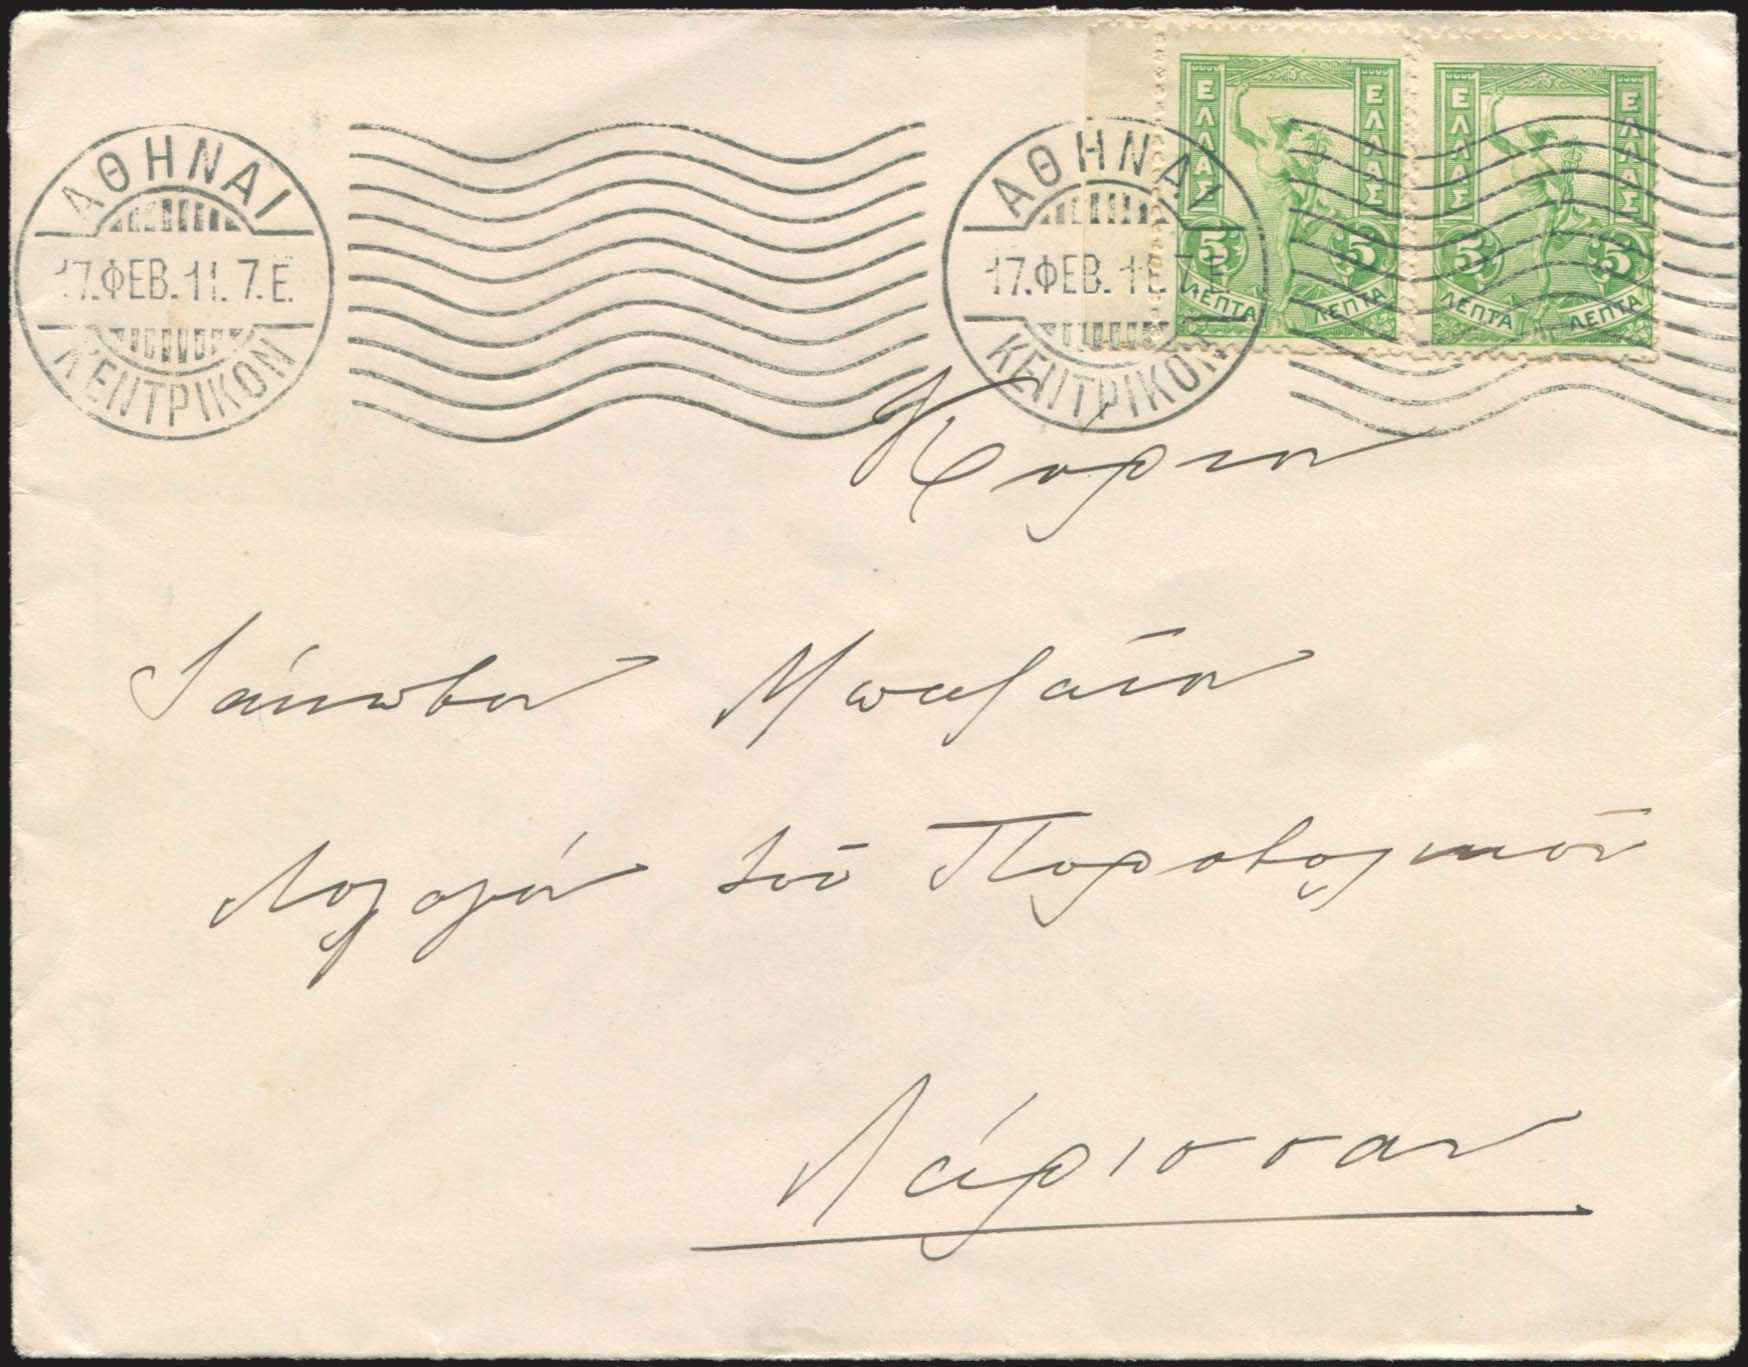 ΑΘΗΝΑΙ
17.ΦΕΒ.11.7.Ε.
ΚΕΝΤΡΙΚΟΝ
ΑΘΗΝΑΙ
17.ΦΕΒ.11.7.Ε.
ΚΕΝΤΡΙΚΟΝ
ΕΛΛΑΣ ΕΛΛΑΣ
5 5
ΛΕΠΤΑ ΛΕΠΤΑ
ΕΛΛΑΣ ΕΛΛΑΣ
5 5
ΛΕΠΤΑ ΛΕΠΤΑ
Κύριον
Ιάκωβον
Λοχαγόν τοῦ Πυροβολικοῦ
Λάρισσαν